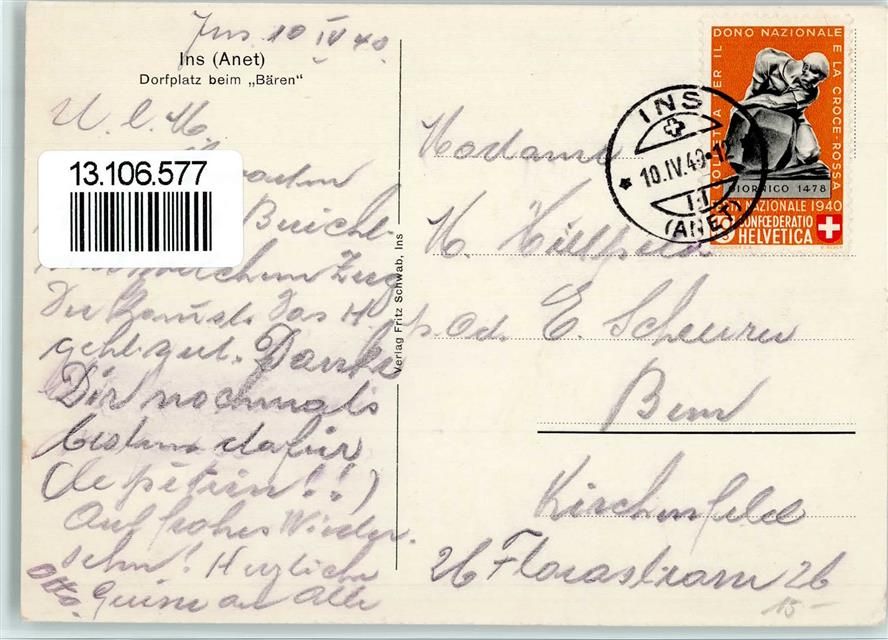 Ins 10 IV 40.
Ins (Anet)
Dorfplatz beim „Bären"
U. l. M.
13.106.577
Du kannst. Das H.
geht gut. Danke
Dir nochmals
bestens dafür
(le pétrin!!)
Auf frohes Wieder-
sehn! Herzliche
Otto. an alle
Verlag Fritz Schwab, Ins
Madame
M.
E. Scheurer
Bern
Kirchenfeld
26 Florastrasse 26
15-
INS
10.IV.40-12
(ANET)
DONO NAZIONALE
PER IL
E LA CROCE-ROSSA
GIORNICO 1478
NAZIONALE 1940
CONFŒDERATIO
HELVETICA